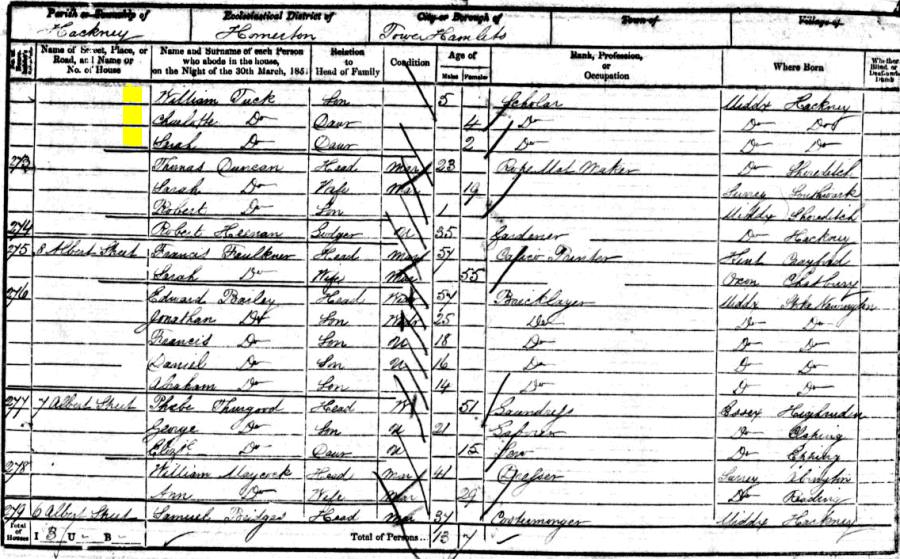 Parish or Township of Ecclesiastical District of City or Borough of Town of Village of
Hackney Homerton Tower Hamlets
Name of Street, Place, or Road, and Name or No. of House Name and Surname of each Person who abode in the house, on the Night of the 30th March, 1851 Relation to Head of Family Condition Age of Males Females Rank, Profession, or Occupation Where Born Whether Blind, or Deaf-and-Dumb
William Tuck Son 5 Scholar Middx Hackney
Charlotte Do Daur 4 Do Do Do
Sarah Do Daur 2 Do Do Do
273 Thomas Duncan Head Mar 23 Rope Mat Maker Do Shoreditch
Sarah Do Wife Mar 19 Surrey Southwark
Robert Do Son 1 Middx Shoreditch
274 Robert Heenan Lodger U 35 Gardener Do Hackney
275 8 Albert Street Francis Faulkner Head Mar 57 Calico Printer Kent Crayford
Sarah Do Wife Mar 55 Oxon
276 Edward Bailey Head 54 Bricklayer Middx Stoke Newington
Jonathan Do Son 25 Do Do Do
Francis Do Son U 18 Do Do Do
Daniel Do Son U 16 Do Do Do
Abraham Do Son 14 Do Do Do
277 7 Albert Street Phebe Thurgood Head W 51 Laundress Essex
George Do Son U 21 Laborer Do
Elizth Do Daur U Do Epping
278 William Maycock Head Mar 41 Surrey
Ann Do Wife Mar 29 Do Reading
279 6 Albert Street Samuel Bridges Head Mar 37 Costermonger Middx Hackney
Total of Houses I 3 U - B - Total of Persons... 13 7